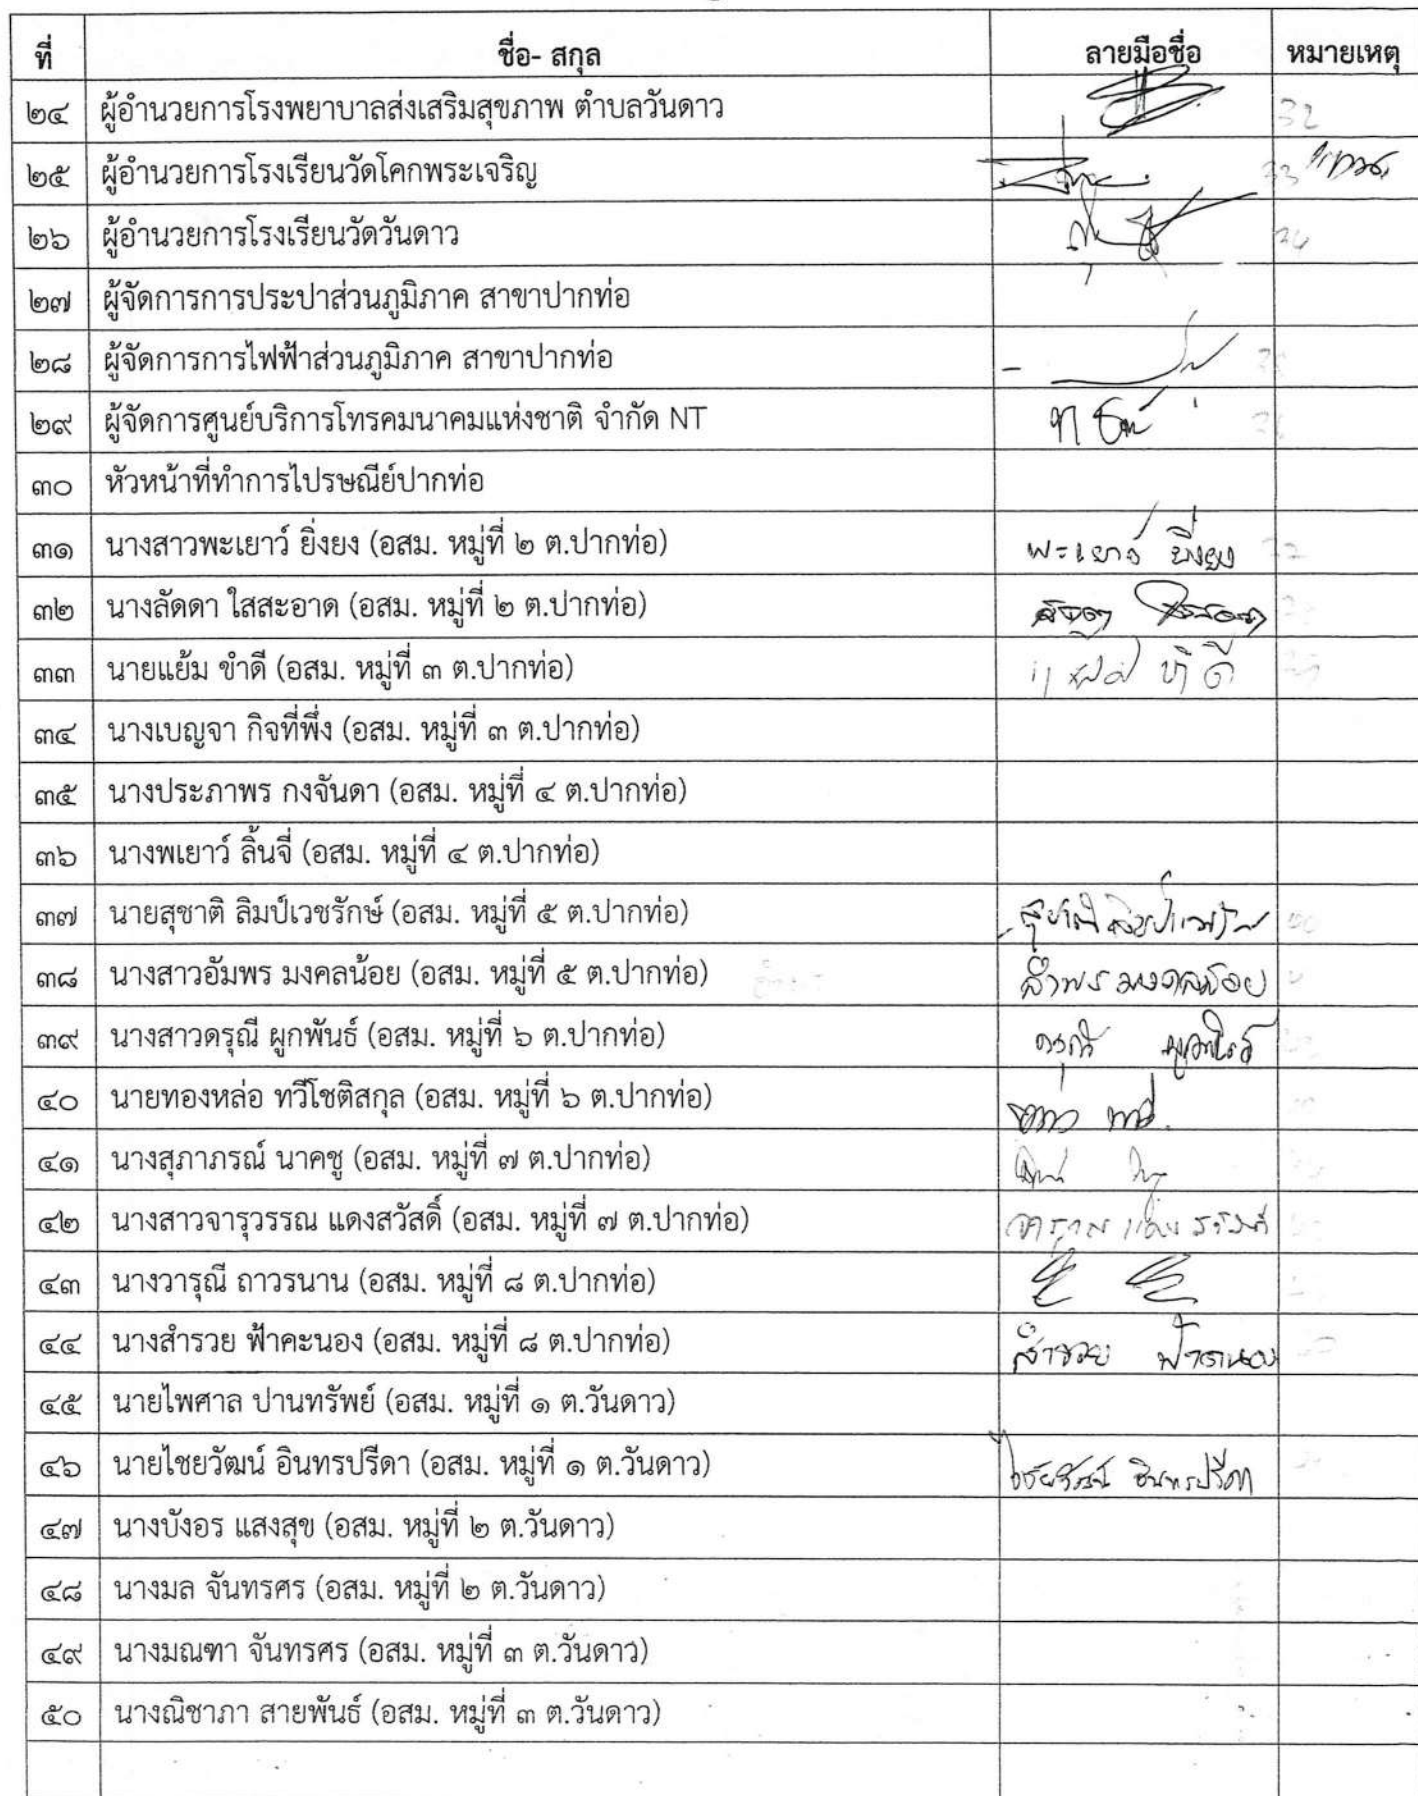 ที่ ชื่อ- สกุล ลายมือชื่อ หมายเหตุ
๒๔ ผู้อำนวยการโรงพยาบาลส่งเสริมสุขภาพ ตำบลวันดาว 32
๒๕ ผู้อำนวยการโรงเรียนวัดโคกพระเจริญ 33
๒๖ ผู้อำนวยการโรงเรียนวัดวันดาว
๒๗ ผู้จัดการการประปาส่วนภูมิภาค สาขาปากท่อ
๒๘ ผู้จัดการการไฟฟ้าส่วนภูมิภาค สาขาปากท่อ
๒๙ ผู้จัดการศูนย์บริการโทรคมนาคมแห่งชาติ จำกัด NT
๓๐ หัวหน้าที่ทำการไปรษณีย์ปากท่อ
๓๑ นางสาวพะเยาว์ ยิ่งยง (อสม. หมู่ที่ ๒ ต.ปากท่อ) พะเยาว์ ยิ่งยง
๓๒ นางลัดดา ใสสะอาด (อสม. หมู่ที่ ๒ ต.ปากท่อ) ลัดดา ใสสะอาด
๓๓ นายแย้ม ขำดี (อสม. หมู่ที่ ๓ ต.ปากท่อ) แย้ม ขำดี
๓๔ นางเบญจา กิจที่พึ่ง (อสม. หมู่ที่ ๓ ต.ปากท่อ)
๓๕ นางประภาพร กงจันดา (อสม. หมู่ที่ ๔ ต.ปากท่อ)
๓๖ นางพเยาว์ ลิ้นจี่ (อสม. หมู่ที่ ๔ ต.ปากท่อ)
๓๗ นายสุชาติ ลิมป์เวชรักษ์ (อสม. หมู่ที่ ๕ ต.ปากท่อ) สุชาติ
๓๘ นางสาวอัมพร มงคลน้อย (อสม. หมู่ที่ ๕ ต.ปากท่อ) อำพร มงคลน้อย
๓๙ นางสาวดรุณี ผูกพันธ์ (อสม. หมู่ที่ ๖ ต.ปากท่อ) ดรุณี ผูกพันธ์
๔๐ นายทองหล่อ ทวีโชติสกุล (อสม. หมู่ที่ ๖ ต.ปากท่อ)
๔๑ นางสุภาภรณ์ นาคชู (อสม. หมู่ที่ ๗ ต.ปากท่อ)
๔๒ นางสาวจารุวรรณ แดงสวัสดิ์ (อสม. หมู่ที่ ๗ ต.ปากท่อ)
๔๓ นางวารุณี ถาวรนาน (อสม. หมู่ที่ ๘ ต.ปากท่อ)
๔๔ นางสำรวย ฟ้าคะนอง (อสม. หมู่ที่ ๘ ต.ปากท่อ) สำรวย ฟ้าคะนอง
๔๕ นายไพศาล ปานทรัพย์ (อสม. หมู่ที่ ๑ ต.วันดาว)
๔๖ นายไชยวัฒน์ อินทรปรีดา (อสม. หมู่ที่ ๑ ต.วันดาว) ไชยวัฒน์ อินทรปรีดา
๔๗ นางบังอร แสงสุข (อสม. หมู่ที่ ๒ ต.วันดาว)
๔๘ นางมล จันทรศร (อสม. หมู่ที่ ๒ ต.วันดาว)
๔๙ นางมณฑา จันทรศร (อสม. หมู่ที่ ๓ ต.วันดาว)
๕๐ นางณิชาภา สายพันธ์ (อสม. หมู่ที่ ๓ ต.วันดาว)